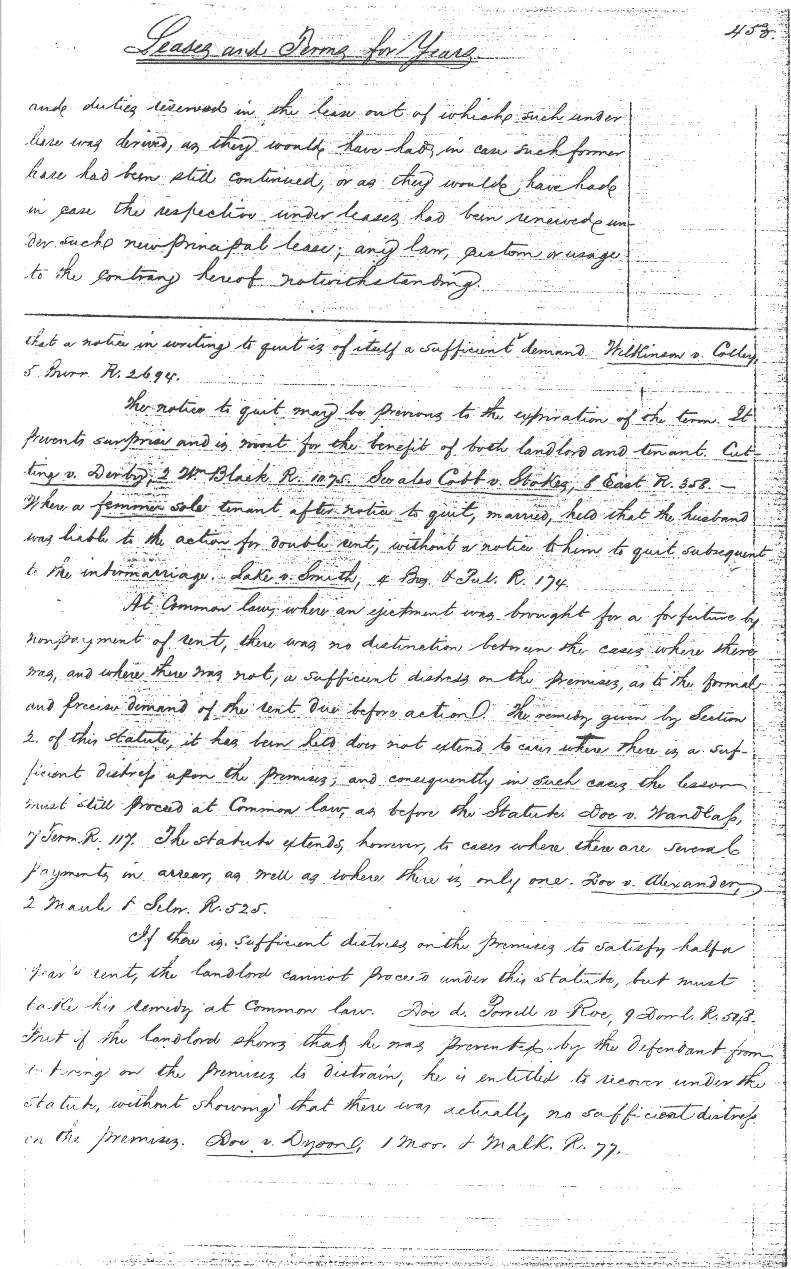 453.
Leases and Terms for Years.
and duties reserved in the lease out of which such under
lease was derived, as they would have had, in case such former
lease had been still continued, or as they would have had
in case the respective under leases had been renewed un-
der such new principal lease; any law, custom or usage
to the contrary hereof notwithstanding.
that a notice in writing to quit is of itself a sufficient demand. Wilkinson v. Colley,
5 Burr. R. 2694.
The notice to quit may be previous to the expiration of the term. It
prevents surprise and is most for the benefit of both landlord and tenant. Cut-
ting v. Derby, 2 Wm Black. R. 1075. See also Cobb v. Stokes, 8 East R. 358. —
Where a femme sole tenant after notice to quit, married, held that the husband
was liable to the action for double rent, without a notice to him to quit subsequent
to the intermarriage. Lake v. Smith, 4 Bos. & Pul. R. 174.
At Common law, where an ejectment was brought for a forfeiture by
nonpayment of rent, there was no distinction between the cases where there
was, and where there was not, a sufficient distress on the premises, as to the formal
and precise demand of the rent due before action. The remedy given by Section
2. of this statute, it has been held does not extend to cases where there is a suf-
ficient distress upon the premises; and consequently in such cases the lessor
must still proceed at Common law, as before the Statute. Doe v. Wandlass,
7 Term. R. 117. The statute extends, however, to cases where there are several
payments in arrear, as well as where there is only one. Doe v. Alexander,
2 Maule & Selw. R. 525.
If there is sufficient distress on the premises to satisfy half a
year's rent, the landlord cannot proceed under this Statute, but must
take his remedy at Common law. Doe d. Forrell v Roe, 9 Dowl. R. 548.
But if the landlord shows that he was prevented by the defendant from
entering on the premises to distrain, he is entitled to recover under the
statute, without showing that there was actually no sufficient distress
on the premises. Doe v. Dyson, 1 Moo. & Malk. R. 77.